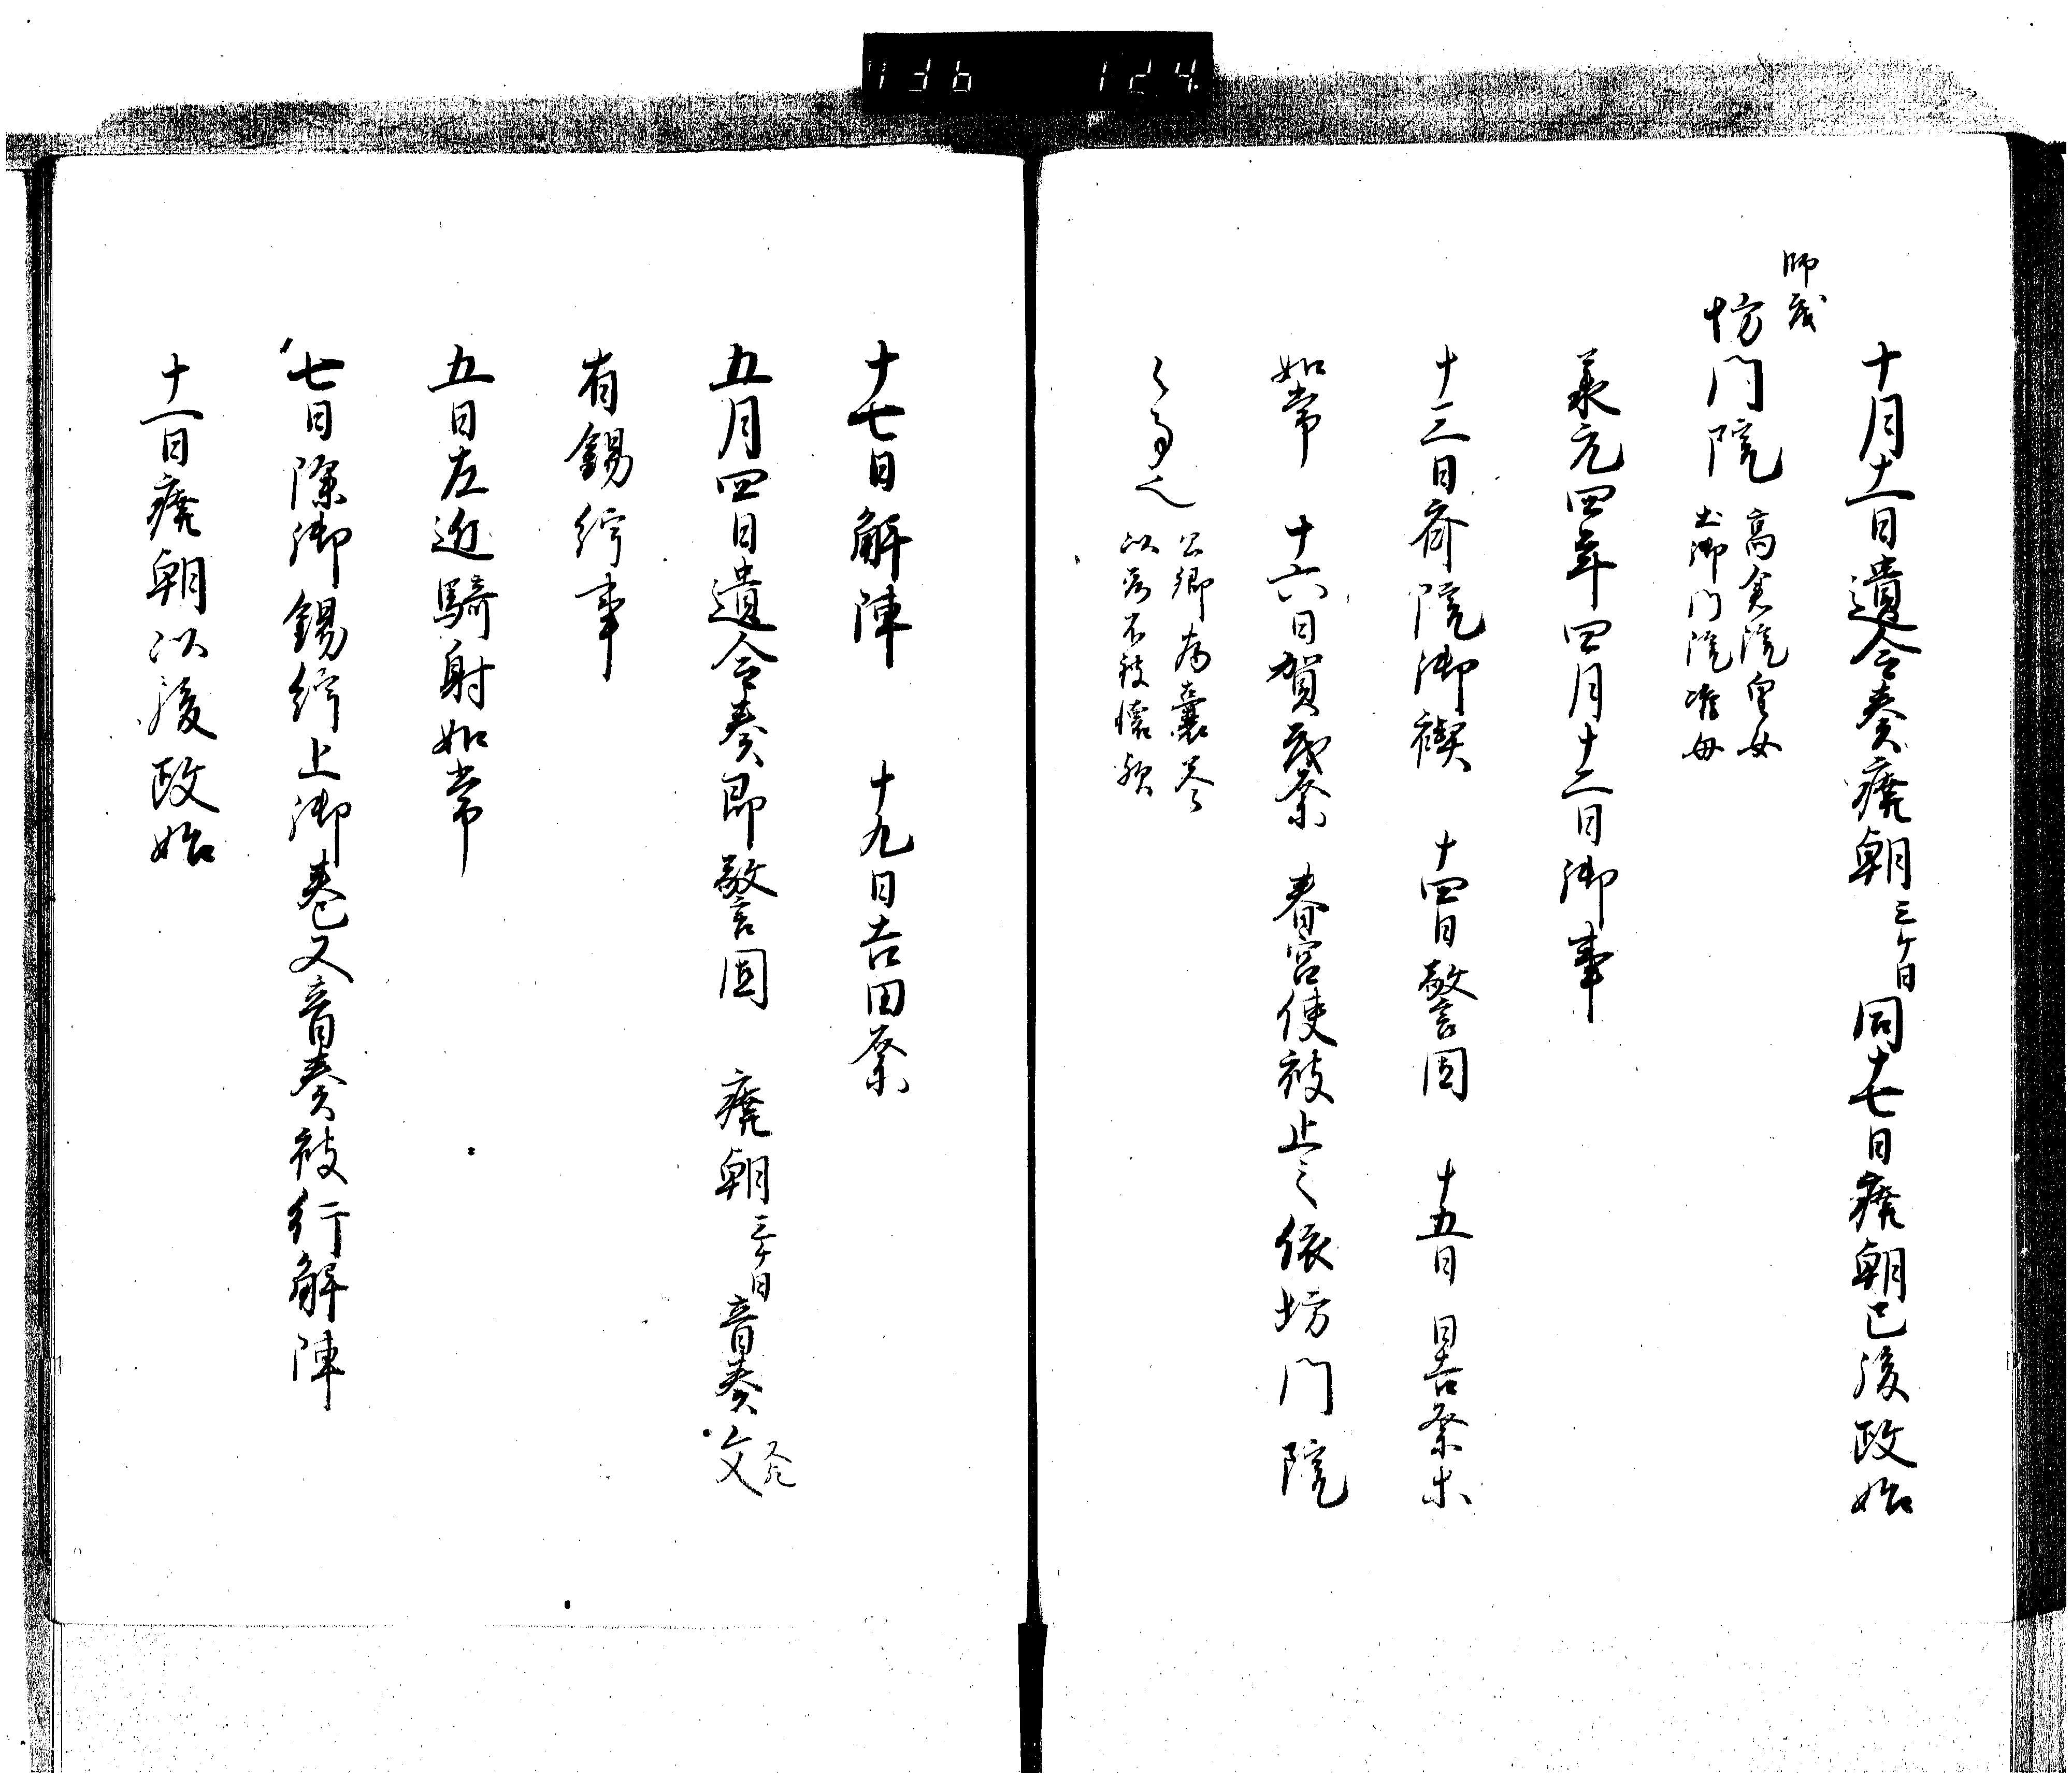 十月十一日遺令奏癈朝三ケ日同十七日癈朝已後政始
師茂
坊門院
高倉院皇女
土御門院准母
承元四年四月十二日御事
十三日斎院御禊 十四日警固 十五日 日吉祭ホ
如常 十六日賀茂祭 春宮使被止之依坊門院
公卿為
以不被
十七日解陣 十九日吉田祭
五月四日遺令奏即警固 癈朝三ケ日音奏文
有錫紵事
五日左近騎射如常
七日除御錫紵上御巻又音奏被行解陣
十一日癈朝以後政始